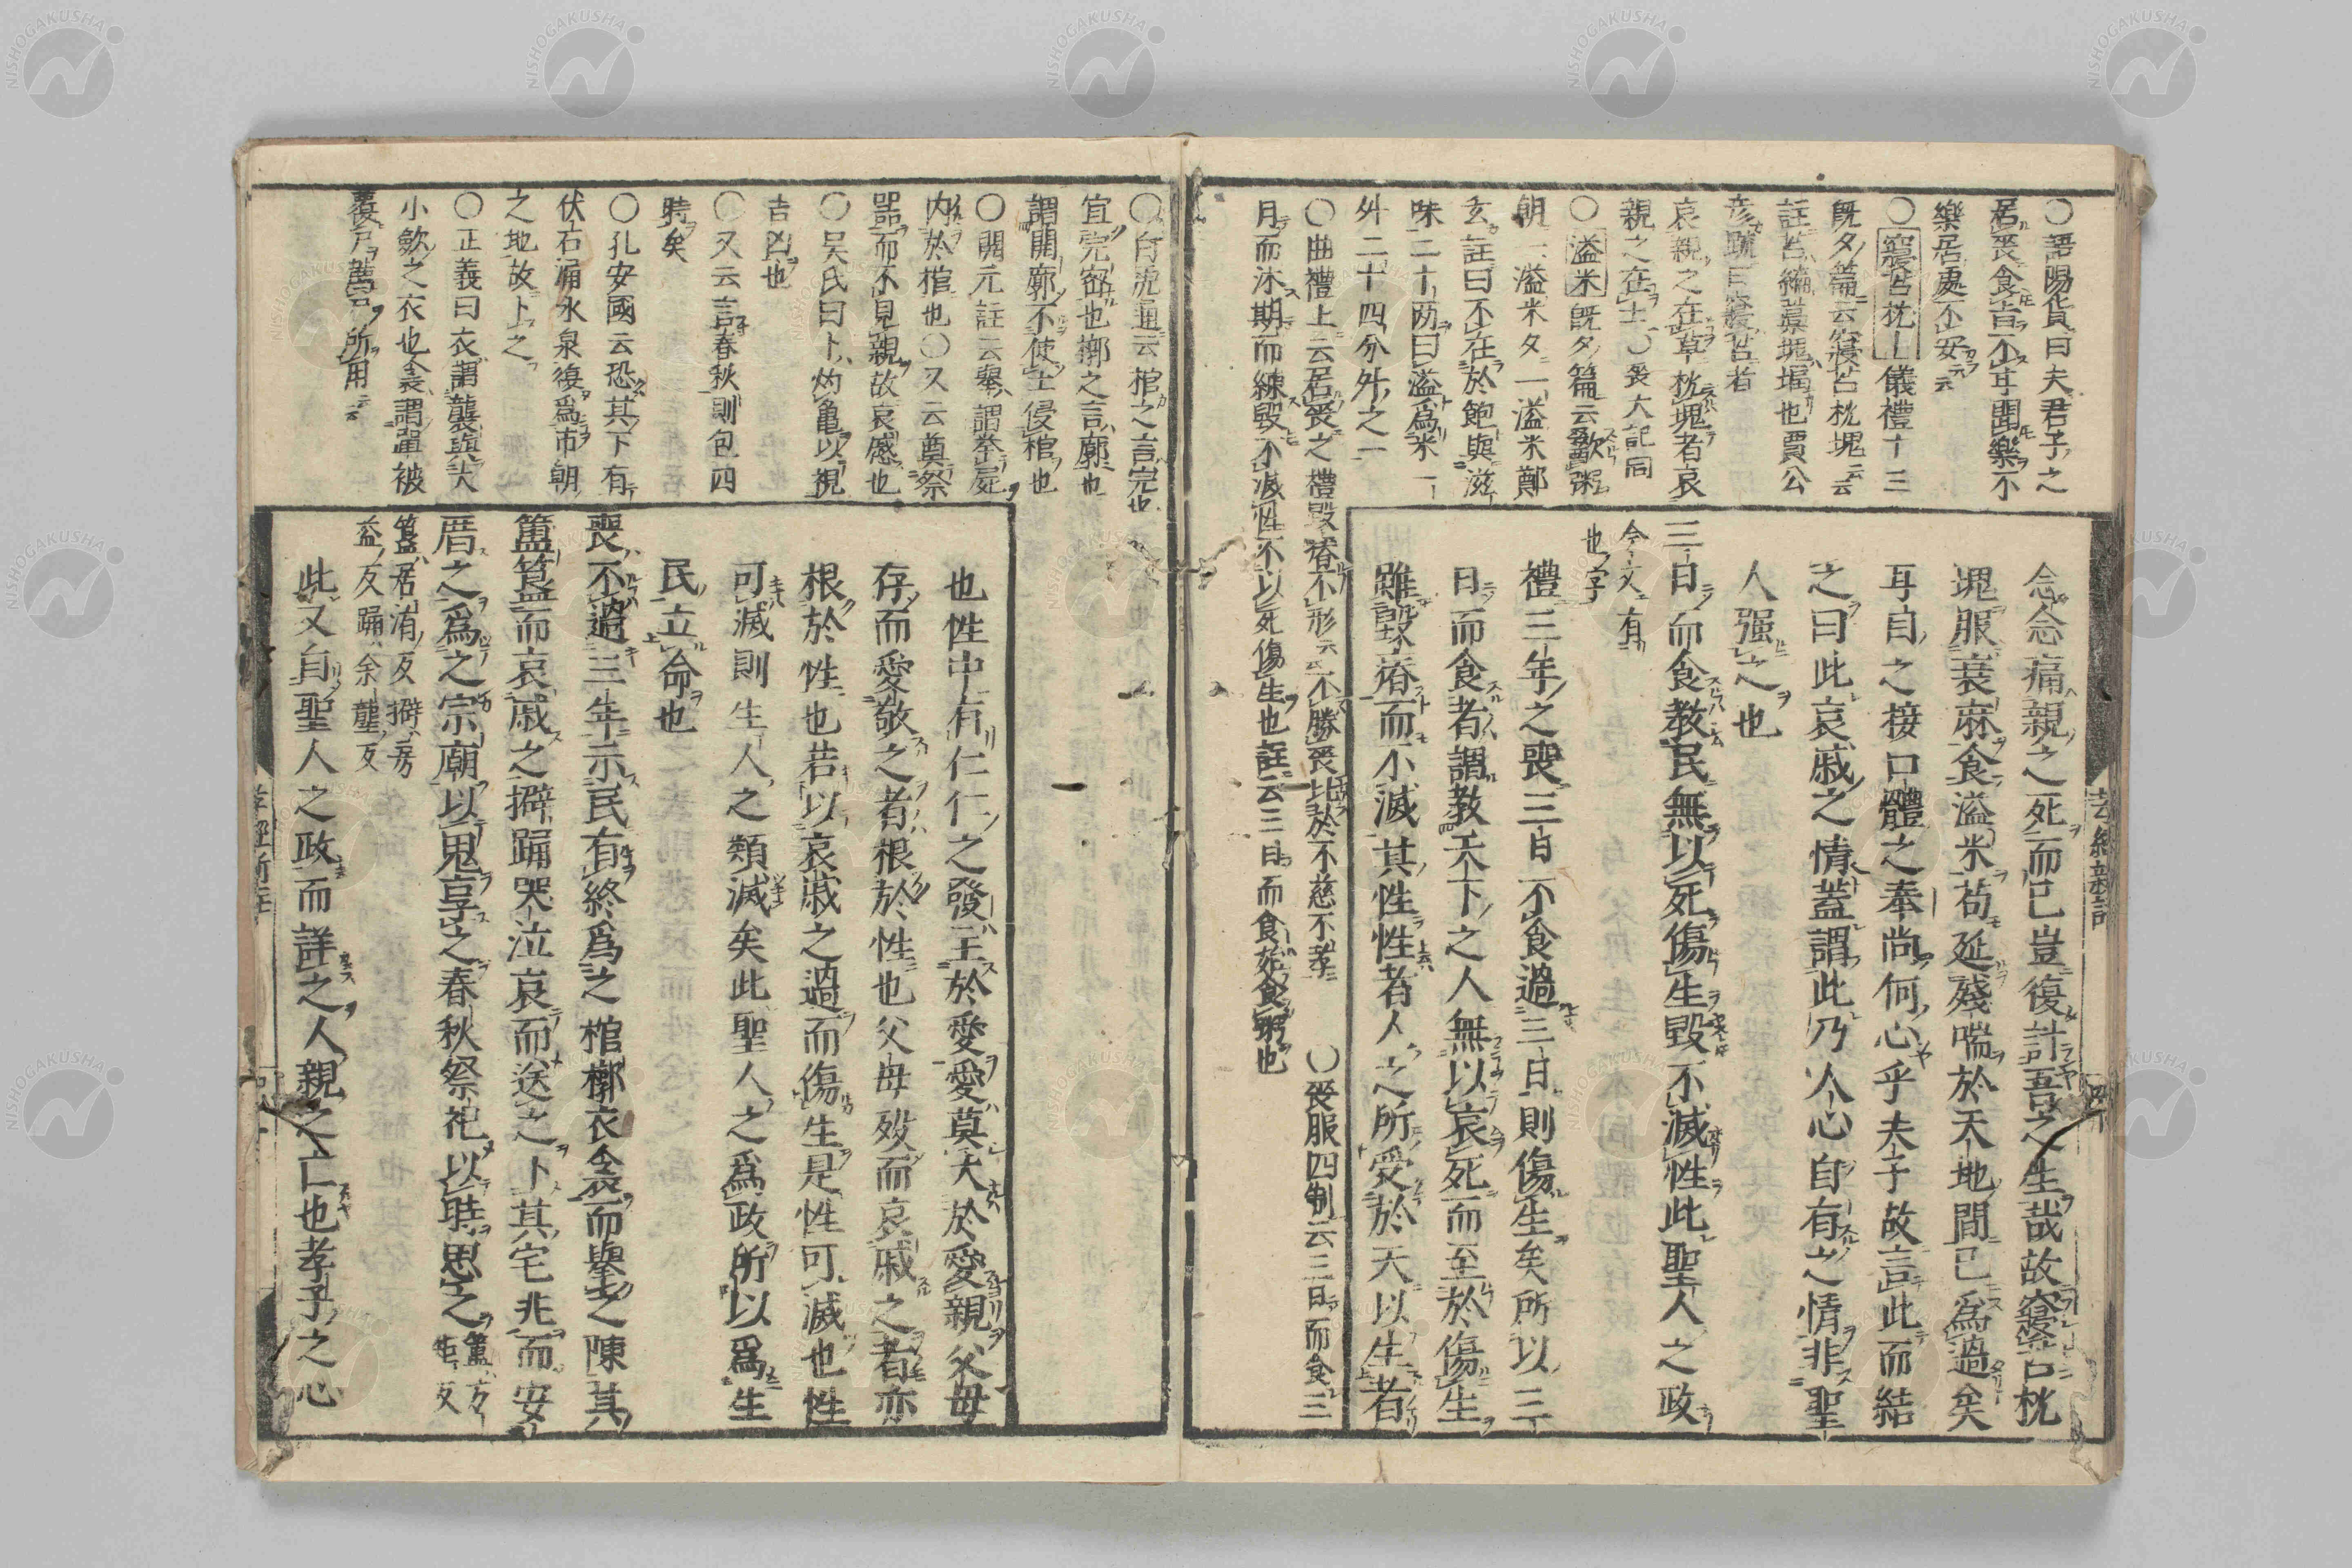 〇語陽貨曰夫君子之
居喪食旨不甘聞樂不
樂居處不安云
〇寢苫枕凷儀禮十三
既夕篇云寢苫枕塊云云
註苫編藁塊堛也賈公
彥疏曰寢苫者
哀親之在草枕塊者哀
親之在土〇喪大記同
〇溢米既夕篇云歠粥
朝一溢米夕一溢米鄭
玄註曰不在於飽與滋
味二十兩曰溢爲米一
升二十四分升之一
〇曲禮上云居喪之禮毀瘠不形云云不勝喪比於不慈不孝 〇喪服四制云三日而食三
月而沐期而練毀不滅性不以死傷生也註云三日而食始食粥也
念念痛親之死而已豈復計吾之生哉故寢苫枕
塊服衰麻食溢米苟延殘喘於天地間已爲過矣
耳目之接口體之奉尚何心乎夫子故言此而結
之曰此哀戚之情蓋謂此乃人心自有之情非聖
人强之也
三日而食教民無以死傷生毀不滅性此聖人之政
今文有
也字
禮三年之喪三日不食過三日則傷生矣所以三
日而食者謂教天下之人無以哀死而至於傷生
雖毀瘠而不滅其性性者人之所受於天以生者
孝經新註
〇白虎通云棺之言完也
宜完密也槨之言廓也
謂開廓不使土侵棺也
〇開元註云舉謂擧屍
内於棺也〇又云奠祭
器而不見親故哀慼也
〇吳氏曰卜灼龜以視
吉凶也
〇又云言春秋則包四
時矣
〇孔安國云恐其下有
伏石涌水泉復爲市朝
之地故卜之
〇正義曰衣謂襲與大
小歛之衣也衾謂單被
覆尸薦尸所用云云
也性中有仁仁之發主於愛愛莫大於愛親父母
存而愛敬之者根於性也父母歿而哀戚之者亦
根於性也若以哀戚之過而傷生是性可滅也性
可滅則生人之類滅矣此聖人之爲政所以爲生
民立命也
喪不過三年示民有終爲之棺槨衣衾而擧之陳其
簠簋而哀戚之擗踊哭泣哀而送之卜其宅兆而安
厝之爲之宗廟以鬼享之春秋祭祀以時思之簠方
簋居洧反擗房
益反踊余隴反
此又自聖人之政而詳之人親之亡也孝子之心
孝經新註